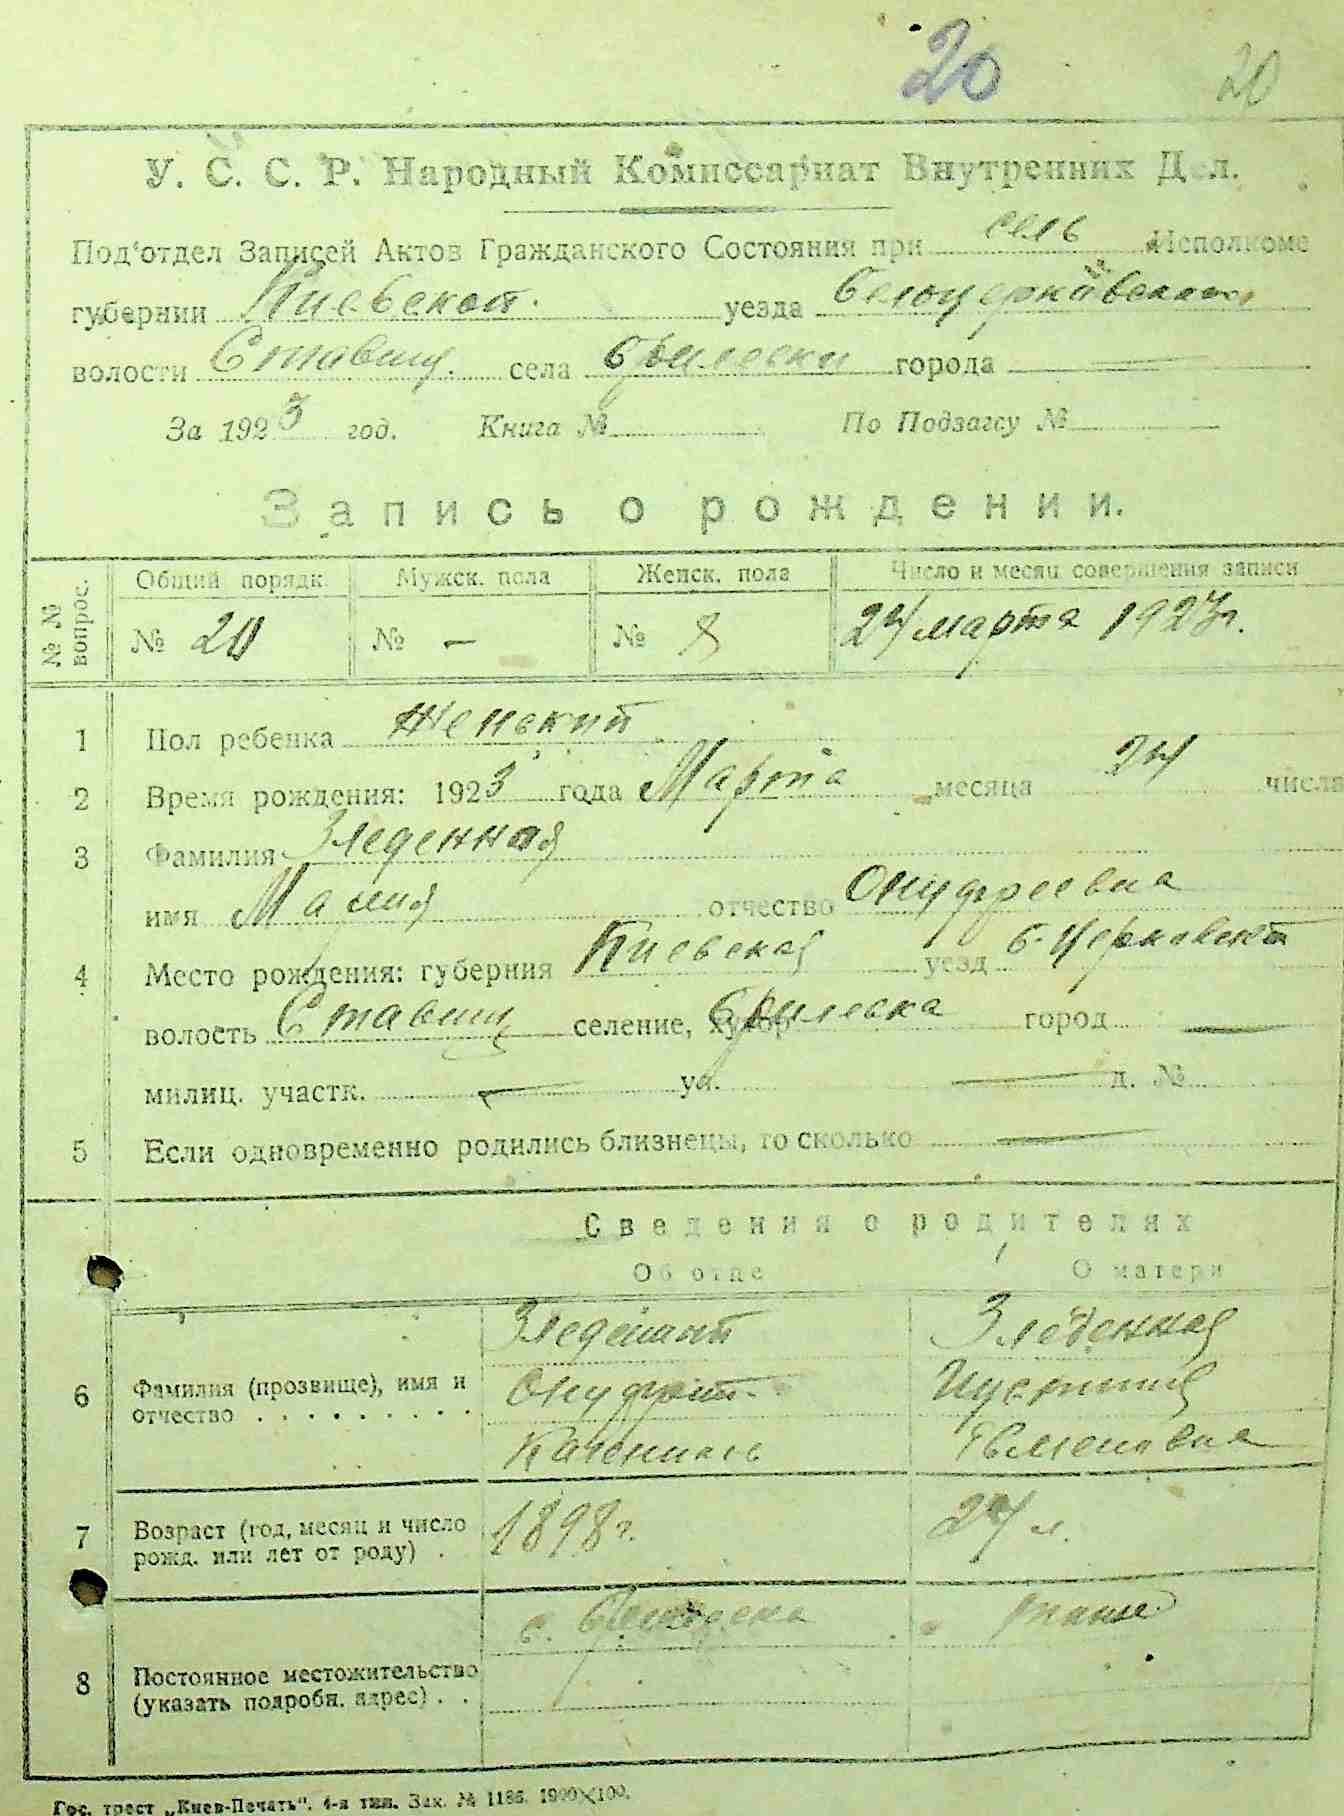 20 20
У. С. С. Р. Народный Комиссариат Внутренних Дел.
Под'отдел Записей Актов Гражданского Состояния при сель Исполкоме
губернии Киевской уезда Белоцерковского
волости Ставищ. села Брилевки города —
За 1923 год. Книга № По Подзагсу №
Запись о рождении.
№ № вопрос. Общий порядк. Мужск. пола Женск. пола Число и месяц совершения записи
№ 20 № — № 8 24 марта 1923 г.
1 Пол ребенка женский
2 Время рождения: 1923 года Марта месяца 24 числа
3 Фамилия Зледенная
имя Мария отчество Онуфреевна
4 Место рождения: губерния Киевская уезд Б-Церковский
волость Ставищ селение, хутор Брилевка город —
милиц. участк. — ул. — д. №
5 Если одновременно родились близнецы, то сколько —
Сведения о родителях
Об отце О матери
6 Фамилия (прозвище), имя и отчество . . . . . . . . .
Зледенный Зледенная
Онуфрий
7 Возраст (год, месяц и число рожд. или лет от роду) . 1898 г. 24 л.
8 Постоянное местожительство (указать подробн. адрес) . . с. Брилевка
Гос. трест „Киев-Печать“. 4-я тип. Зак. № 1186. 1900×100.